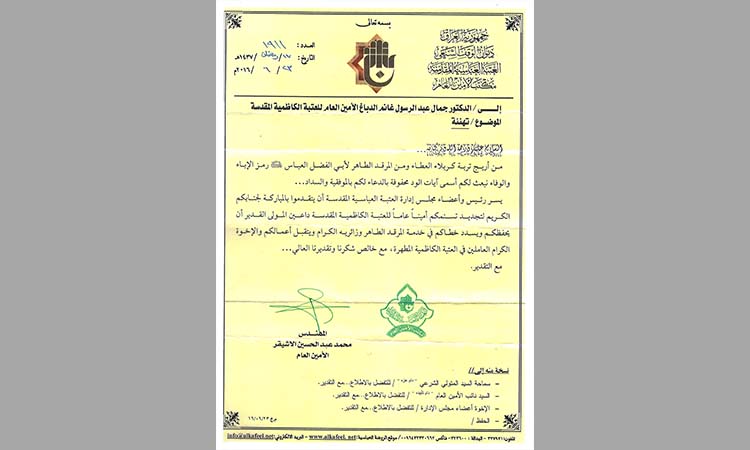 بسمه تعالى
جمهورية العراق
ديوان الوقف الشيعي
العتبة العباسية المقدسة
مكتب الأمين العام
العدد: ١٩١١
التاريخ: ١٧/رمضان/١٤٣٧هـ
٢٣/٦/٢٠١٦م
إلــى / الدكتور جمال عبد الرسول غانم الدباغ الأمين العام للعتبة الكاظمية المقدسة
الموضوع / تهنئة
السلام عليكم ورحمة الله وبركاته ...
من أريج تربة كربلاء العطاء ومن المرقد الطاهر لأبي الفضل العباس رمز الإباء
والوفاء نبعث لكم أسمى آيات الود محفوفة بالدعاء لكم بالموفقية والسداد...
يسر رئيس وأعضاء مجلس إدارة العتبة العباسية المقدسة أن يتقدموا بالمباركة لجنابكم
الكريم لتجديد تسنمكم أميناً عاماً للعتبة الكاظمية المقدسة داعين المولى القدير أن
يحفظكم ويسدد خطاكم في خدمة المرقد الطاهر وزائريه الكرام ويتقبل أعمالكم والإخوة
الكرام العاملين في العتبة الكاظمية المطهرة، مع خالص شكرنا وتقديرنا العالي...
مع التقدير.
المهندس
محمد عبد الحسين الاشيقر
الأمين العام
نسخة منه إلى //
– سماحة السيد المتولي الشرعي "دام عزه" / للتفضل بالاطلاع..مع التقدير.
– السيد نائب الأمين العام / للتفضل بالاطلاع..مع التقدير.
– الإخوة أعضاء مجلس الإدارة / للتفضل بالاطلاع..مع التقدير.
– الحفظ /
١٦/٠٦/٢٣
موقع الروضة العباسية: www.alkafeel.net – البريد الالكتروني: info@alkafeel.net